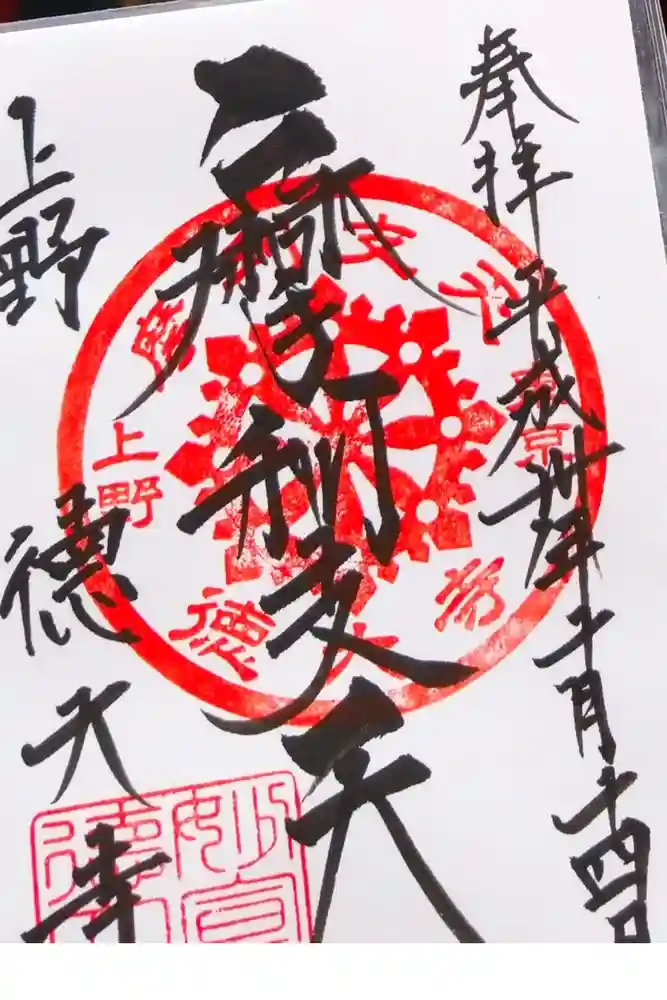 奉拝 平成卅年十月十四日
摩利支天
上野 徳大寺
摩利支天
東京
上野
徳大寺
妙宣
徳